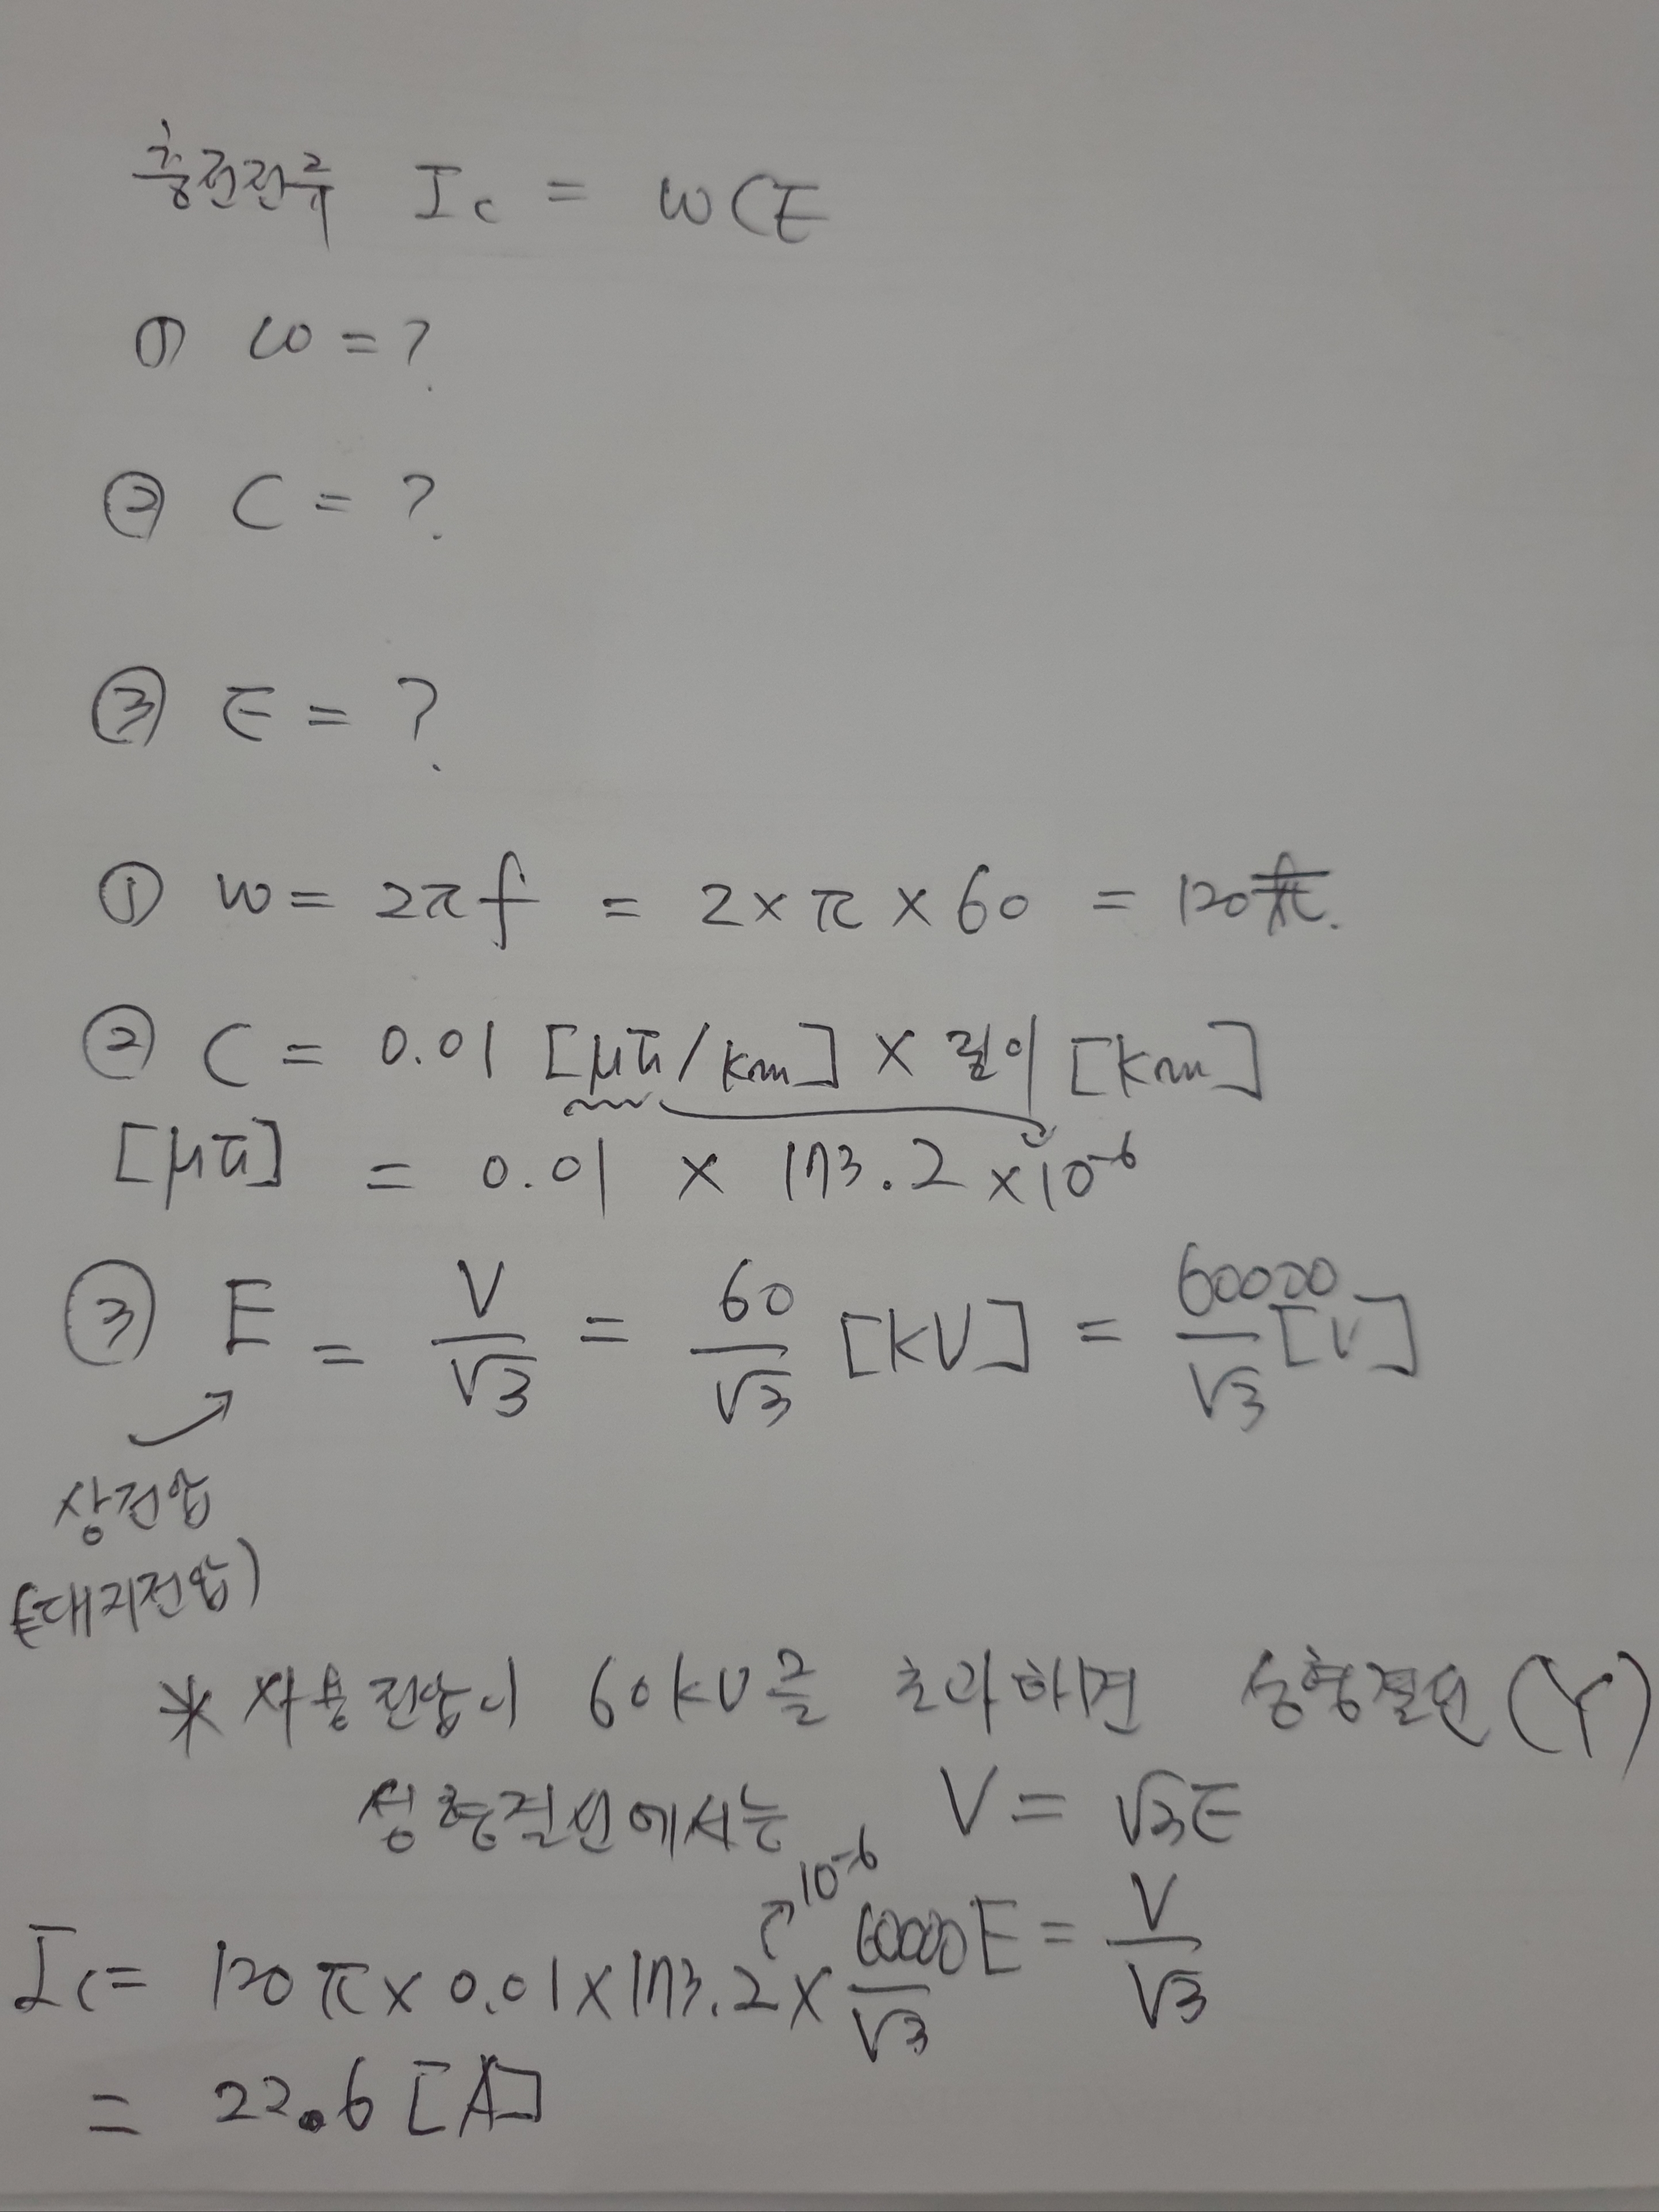 충전전류 Ic = wCE
① w = ?
② C = ?
③ E = ?
① w = 2πf = 2×π×60 = 120π.
② C = 0.01 [μF/km] × 길이 [km]
[μF] = 0.01 × 173.2 × 10⁻⁶
③ E = V/√3 = 60/√3 [kV] = 60000/√3 [V]
상전압
(대지전압)
* 사용전압이 60kV를 초과하면 성형결선 (Y)
성형결선에서는 V = √3E
10⁻⁶
E = V/√3
Ic = 120π × 0.01 × 173.2 × 60000/√3
= 22.6 [A]